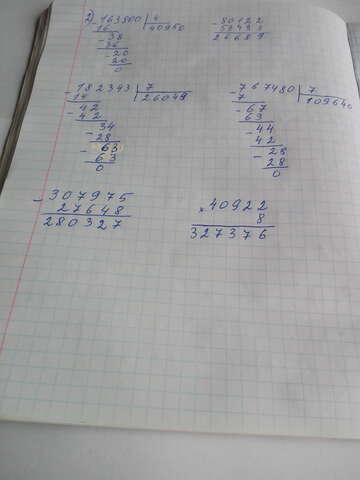 2) - 163800 | 4
16 | 40950
- 38
36
- 20
20
0
- 80122
53433
26689
- 182343 | 7
14 | 26049
- 42
42
- 34
28
- 63
63
0
- 767480 | 7
7 | 109640
- 67
63
- 44
42
- 28
28
0
- 307975
27648
280327
× 40922
8
327376